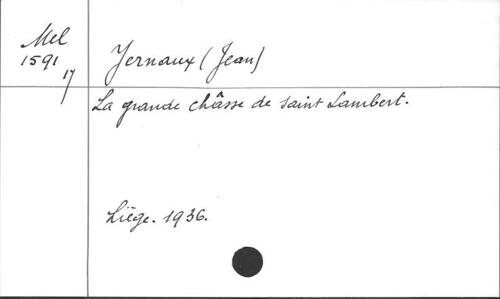 Mel
1591
17
Yernaux (Jean)
La grande châsse de saint Lambert.
Liège. 1936.